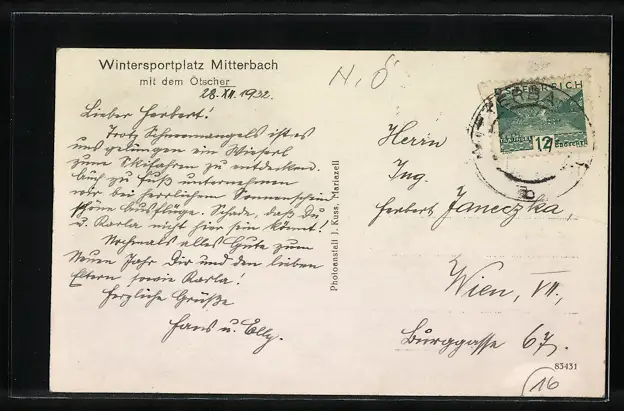 Wintersportplatz Mitterbach
mit dem Ötscher
28.XII.1932.
Lieber Herbert!
Trotz Schneemangels ist es
uns gelungen ein Wieserl
zum Skifahren zu entdecken.
Auch zu Fuß unternehmen
wir bei herrlichem Sonnenschein
schöne Ausflüge. Schade, daß Du
u. Karla nicht hier sein könnt!
Nochmals alles Gute zum
Neuen Jahr Dir und den lieben
Eltern sowie Karla!
Herzliche Grüße
Hans u. Elly.
Photoanstalt J. Kuss, Mariazell
N.Ö
ÖSTERREICH
12
Herrn
Ing.
Herbert Janeczka,
Wien, VII.,
Burggasse 67.
83431
16